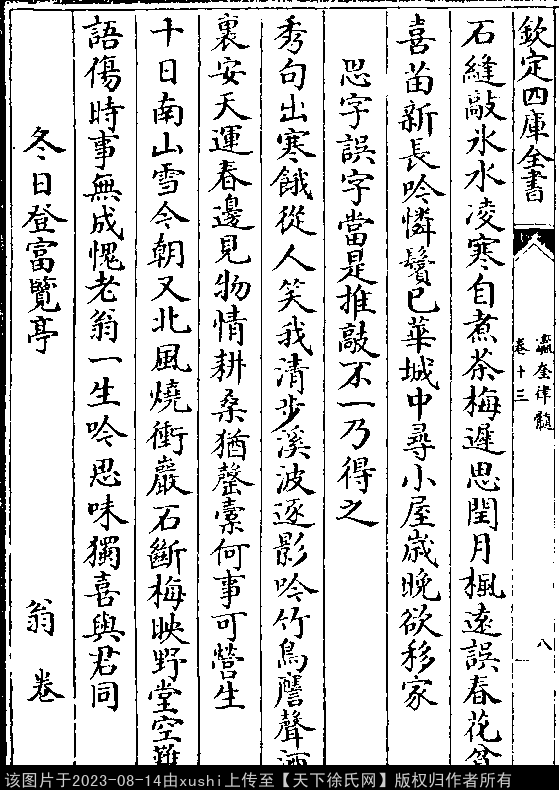 欽定四庫全書
瀛奎律髓
卷十三
八
石縫敲氷水凌寒自煮茶梅遲思閏月楓遠誤春花貧
喜苗新長吟憐鬢已華城中尋小屋歲晚欲移家
思字誤字當是推敲不一乃得之
秀句出寒餓從人笑我清步溪波逐影吟竹鳥譍聲酒
裏安天運春邊見物情耕桑猶罄橐何事可營生
十日南山雪今朝又北風燒衝巖石斷梅映野堂空難
語傷時事無成愧老翁一生吟思味獨喜與君同
冬日登富覽亭
翁卷
该图片于2023-08-14由xushi上传至【天下徐氏网】版权归作者所有